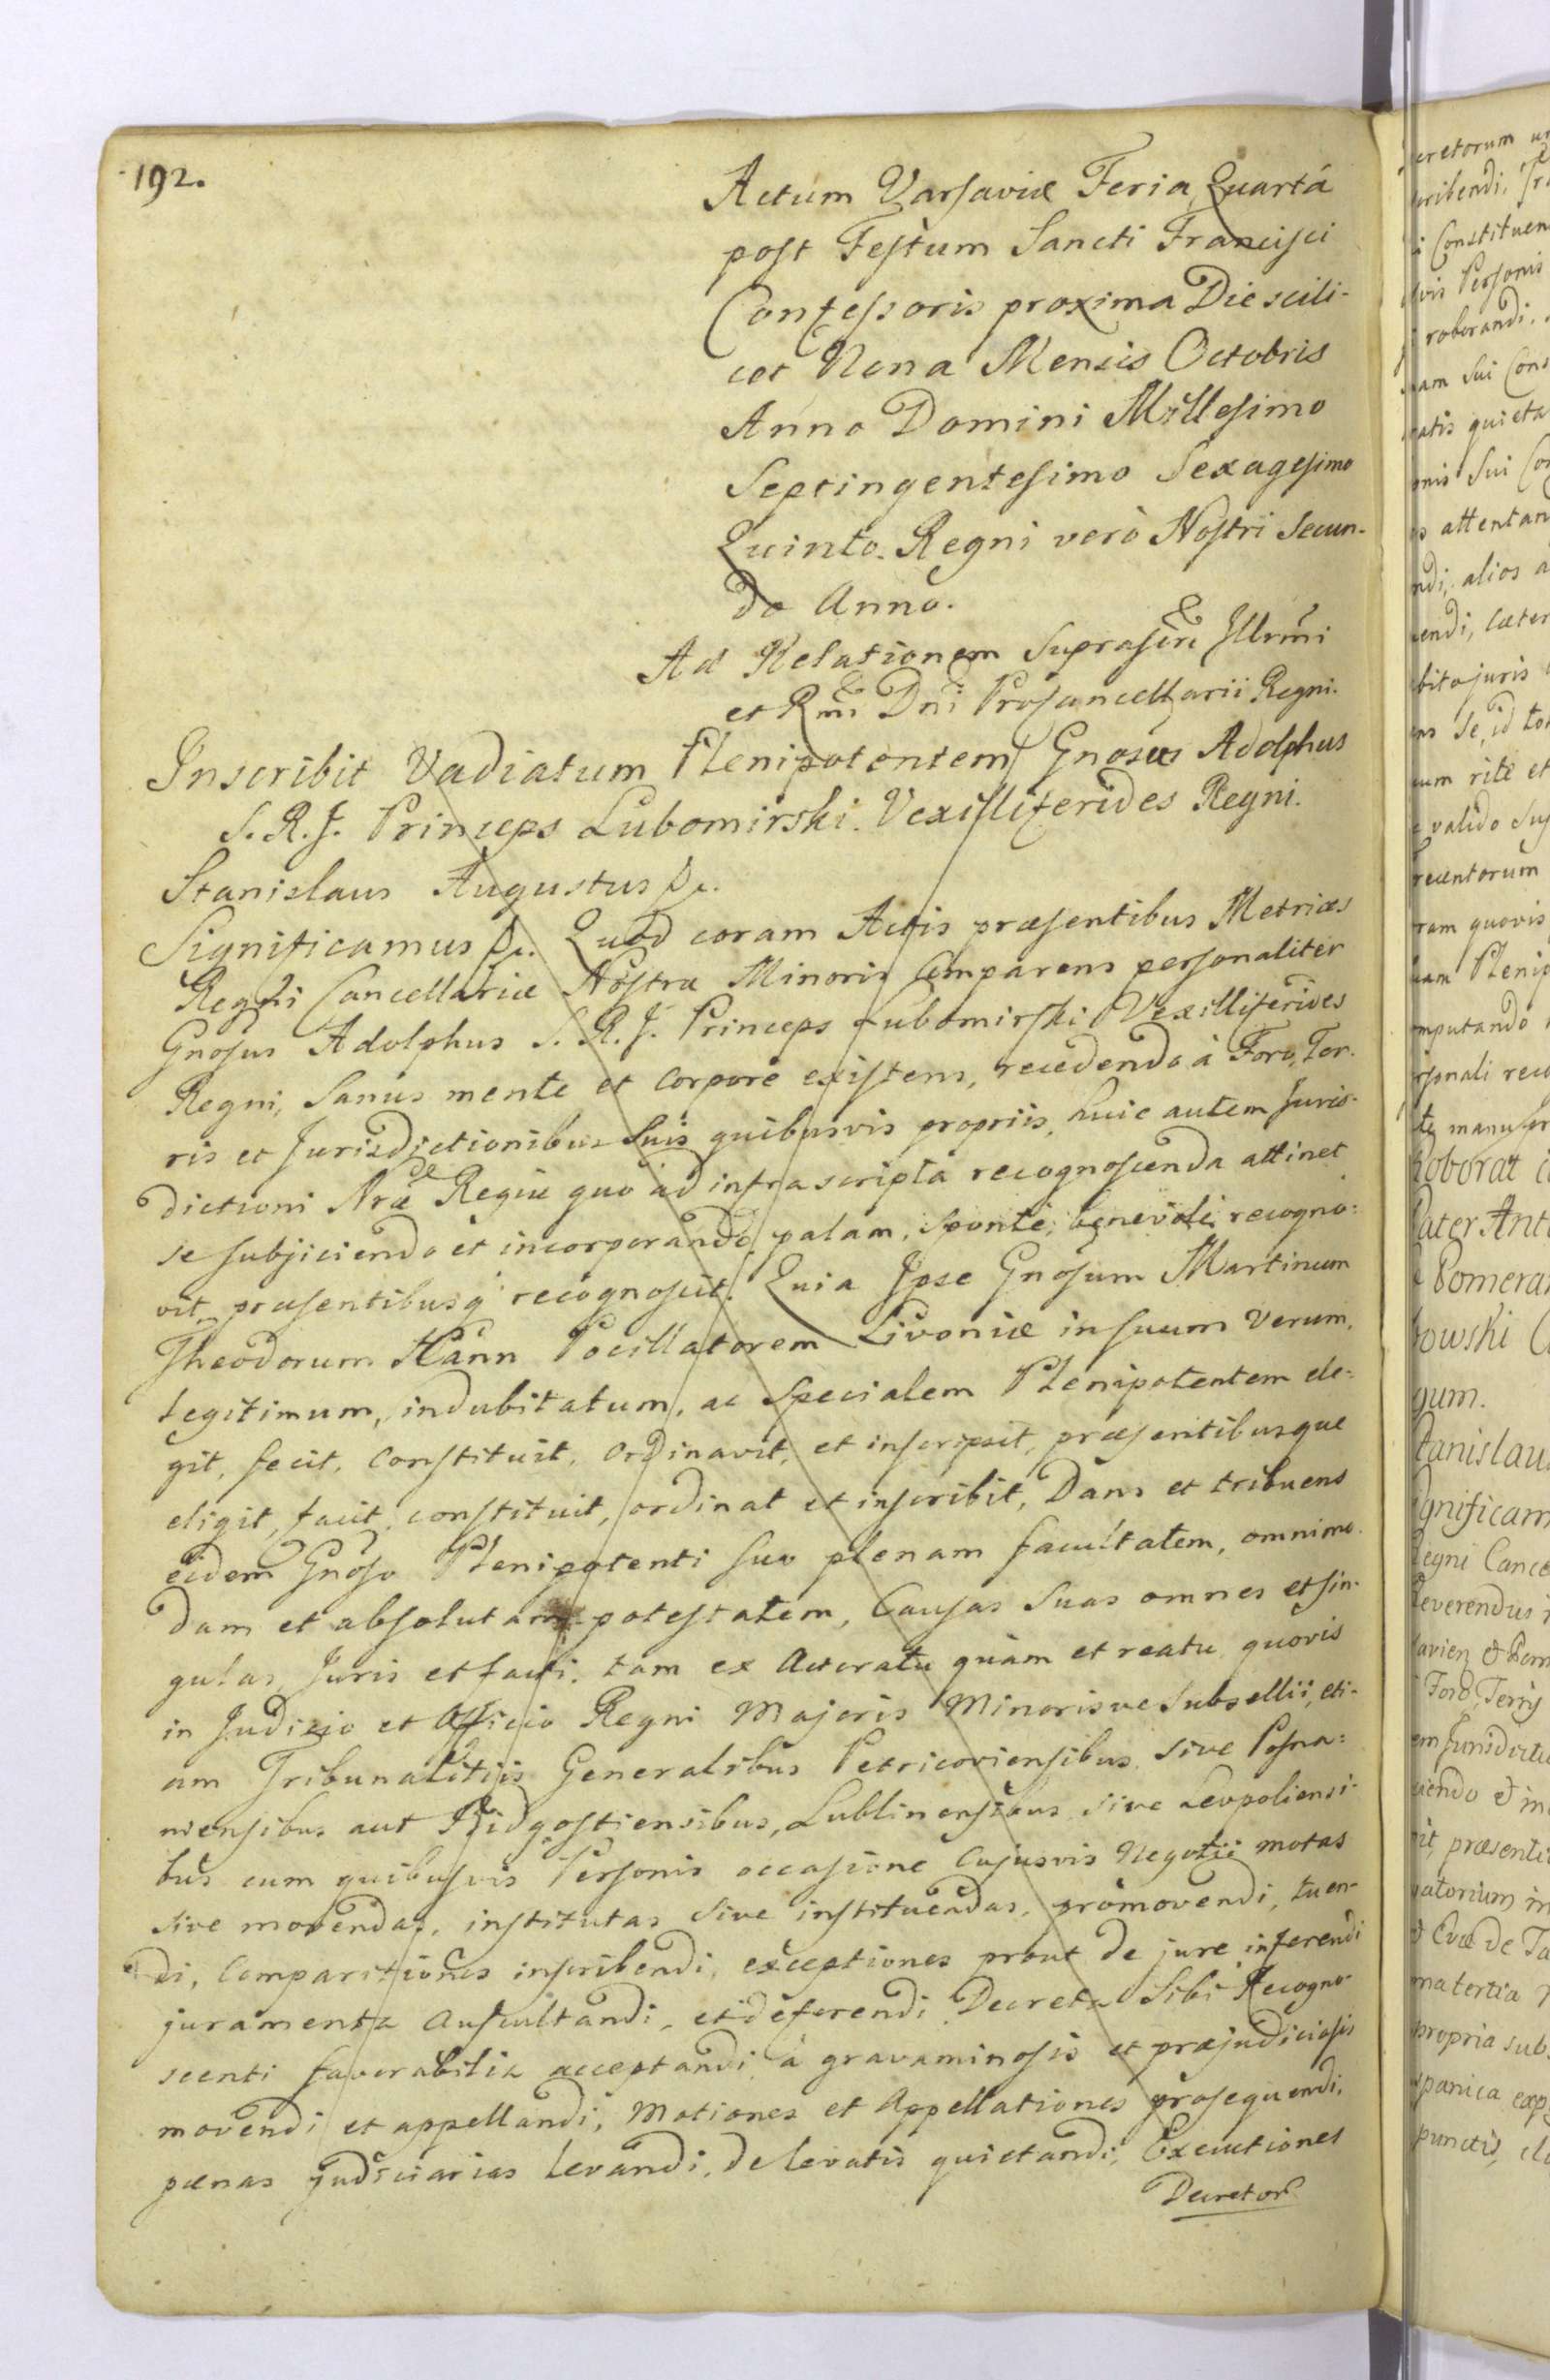 192.
Actum Varsaviæ Feria Quartâ
post Festum Sancti Francisci
Confessoris proxima Die scili-
cet Nona Mensis Octobris
Anno Domini Millesimo
Septingentesimo Sexagesimo
Quinto. Regni verò Nostri secun-
do Anno.
Ad Relationem suprascri Illrmi
et Rmi Dni Procancellarii Regni.
Inscribit Vadiatum Plenipotentem Gnosus Adolphus
S. R. J. Princeps Lubomirski Vexilliferides Regni.
Stanislaus Augustus &c.
Significamus &c. Quod coram Actis præsentibus Metrices
Regni Cancellariæ Nostræ Minoris Comparens personaliter
Gnosus Adolphus S. R. J. Princeps Lubomirski Vexilliferides
Regni, Sanus mente et Corpore existens, recedendo à Foro, Ter-
ris et Jurisdictionibus Suis quibusvis propriis, huic autem Juris-
dictioni Nræ Regiæ quo ad infrascripta recognoscenda attinet
se subjiciendo et incorporando, palam, sponte, benevole recogno-
vit, præsentibusq recognoscit. Quia Ipse Gnosum Martinum
Theodorum Hann Pocillatorem Livoniæ in suum Verum,
Legitimum, indubitatum, ac Specialem Plenipotentem ele-
git, fecit, Constituit, Ordinavit, et inscripsit, præsentibusque
eligit, facit, constituit, ordinat et inscribit, Dans et tribuens
eidem Gnoso Plenipotenti suo plenam facultatem, omnimo-
dam et absolutam potestatem, Causas Suas omnes et sin-
gulas, Juris et facti, tam ex Actoratu quàm et reatu quovis
in Judicio et Officio Regni Majoris Minorisve Subsellii, eti-
am Tribunalitiis Generalibus Petricoviensibus, sive Posna-
niensibus aut Bidgostiensibus, Lublinensibus sive Leopoliensi-
bus cum quibusvis Personis occasione Cujusvis Negotii motas
sive movendas, institutas sive instituendas, promovendi, tuen-
di, Comparitiones inscribendi, exceptiones prout de jure inferendi
juramenta Auscultandi, et deferendi Decreta Sibi Recogno-
scenti favorabilia acceptandi à gravaminosis et præjudiciosis
movendi et appellandi, Motiones et Appellationes prosequendi,
pænas judiciarias levandi, de levatis quietandi, Executiones
Decretor